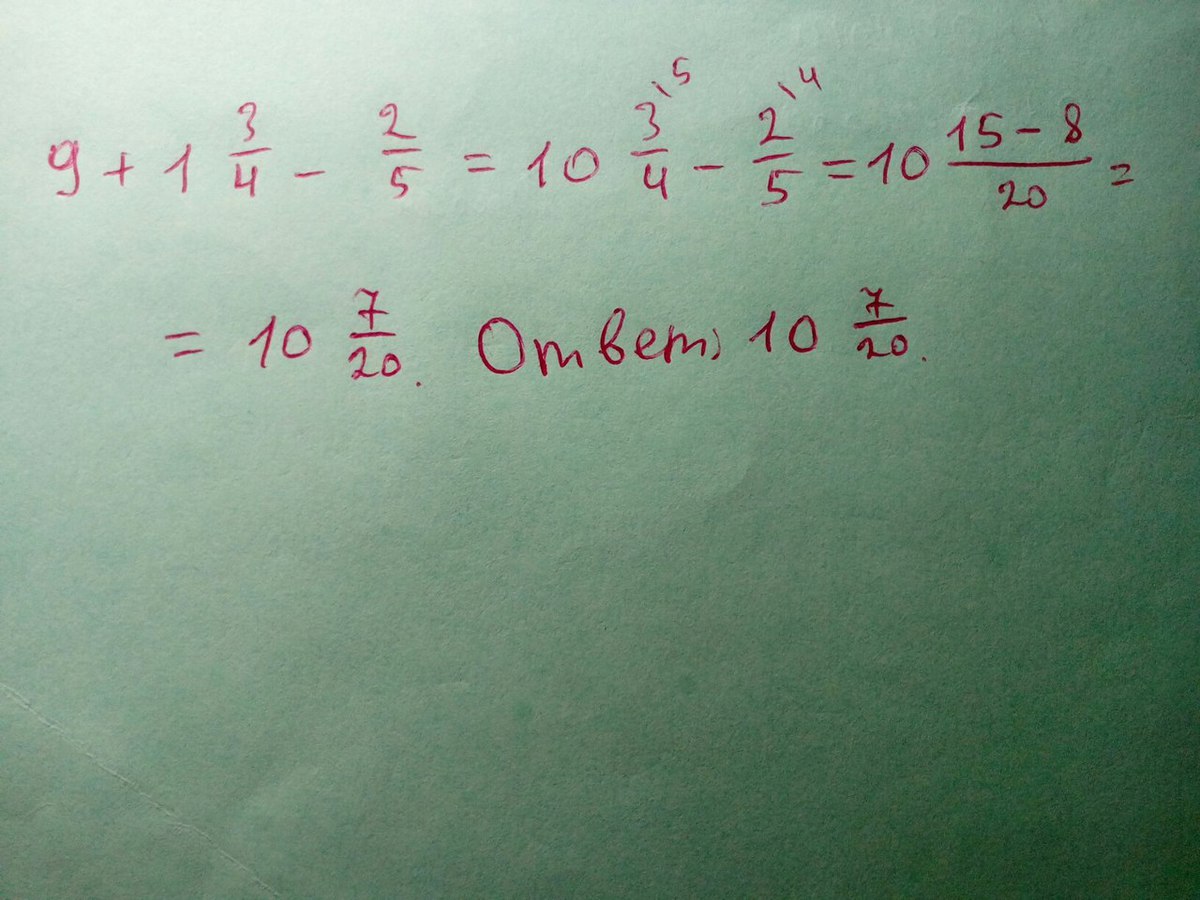 9 + 1 3/4 - 2/5 = 10 3/4 \5 - 2/5 \4 = 10 (15 - 8)/20 =
= 10 7/20. Ответ: 10 7/20.